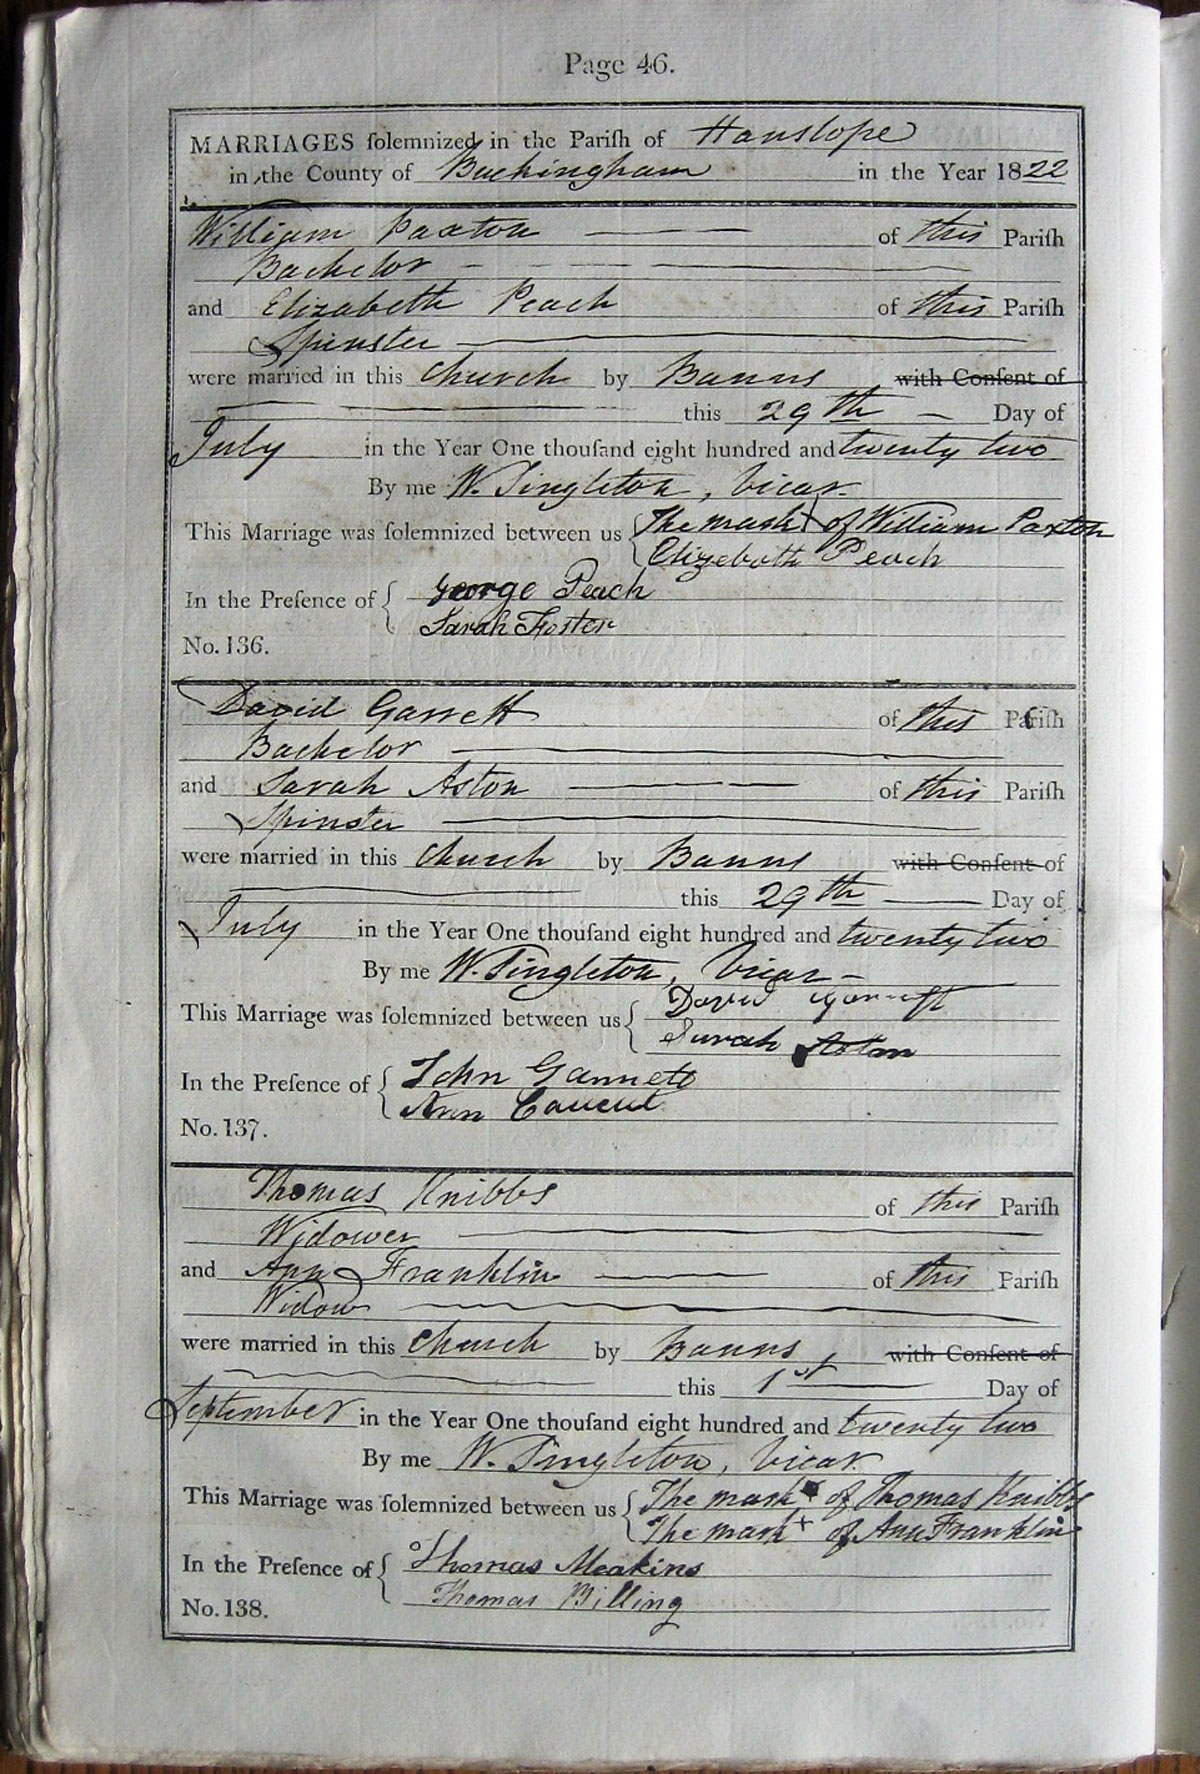 Page 46.
MARRIAGES ſolemnized in the Pariſh of Hanslope
in the County of Buckingham in the Year 1822
William Paxton of this Pariſh
Bachelor
and Elizabeth Peach of this Pariſh
Spinster
were married in this Church by Banns with Conſent of
this 29th Day of
July in the Year One thouſand eight hundred and twenty two
By me W. Singleton, Vicar.
This Marriage was ſolemnized between us { The mark X of William Paxton
Elizebath Peach
In the Preſence of { George Peach
Sarah Foster
No. 136.
David Garrett of this Pariſh
Bachelor
and Sarah Aston of this Pariſh
Spinster
were married in this Church by Banns with Conſent of
this 29th Day of
July in the Year One thouſand eight hundred and twenty two
By me W. Singleton, Vicar
This Marriage was ſolemnized between us { David
Sarah Aston
In the Preſence of { John
Ann
No. 137.
Thomas Knibbs of this Pariſh
Widower
and Ann Franklin of this Pariſh
Widow
were married in this Church by Banns with Conſent of
this 1st Day of
September in the Year One thouſand eight hundred and twenty two
By me W. Singleton, Vicar.
This Marriage was ſolemnized between us { The mark X of Thomas Knibbs
The mark + of Ann Franklin
In the Preſence of { Thomas Meakins
Thomas Billing
No. 138.